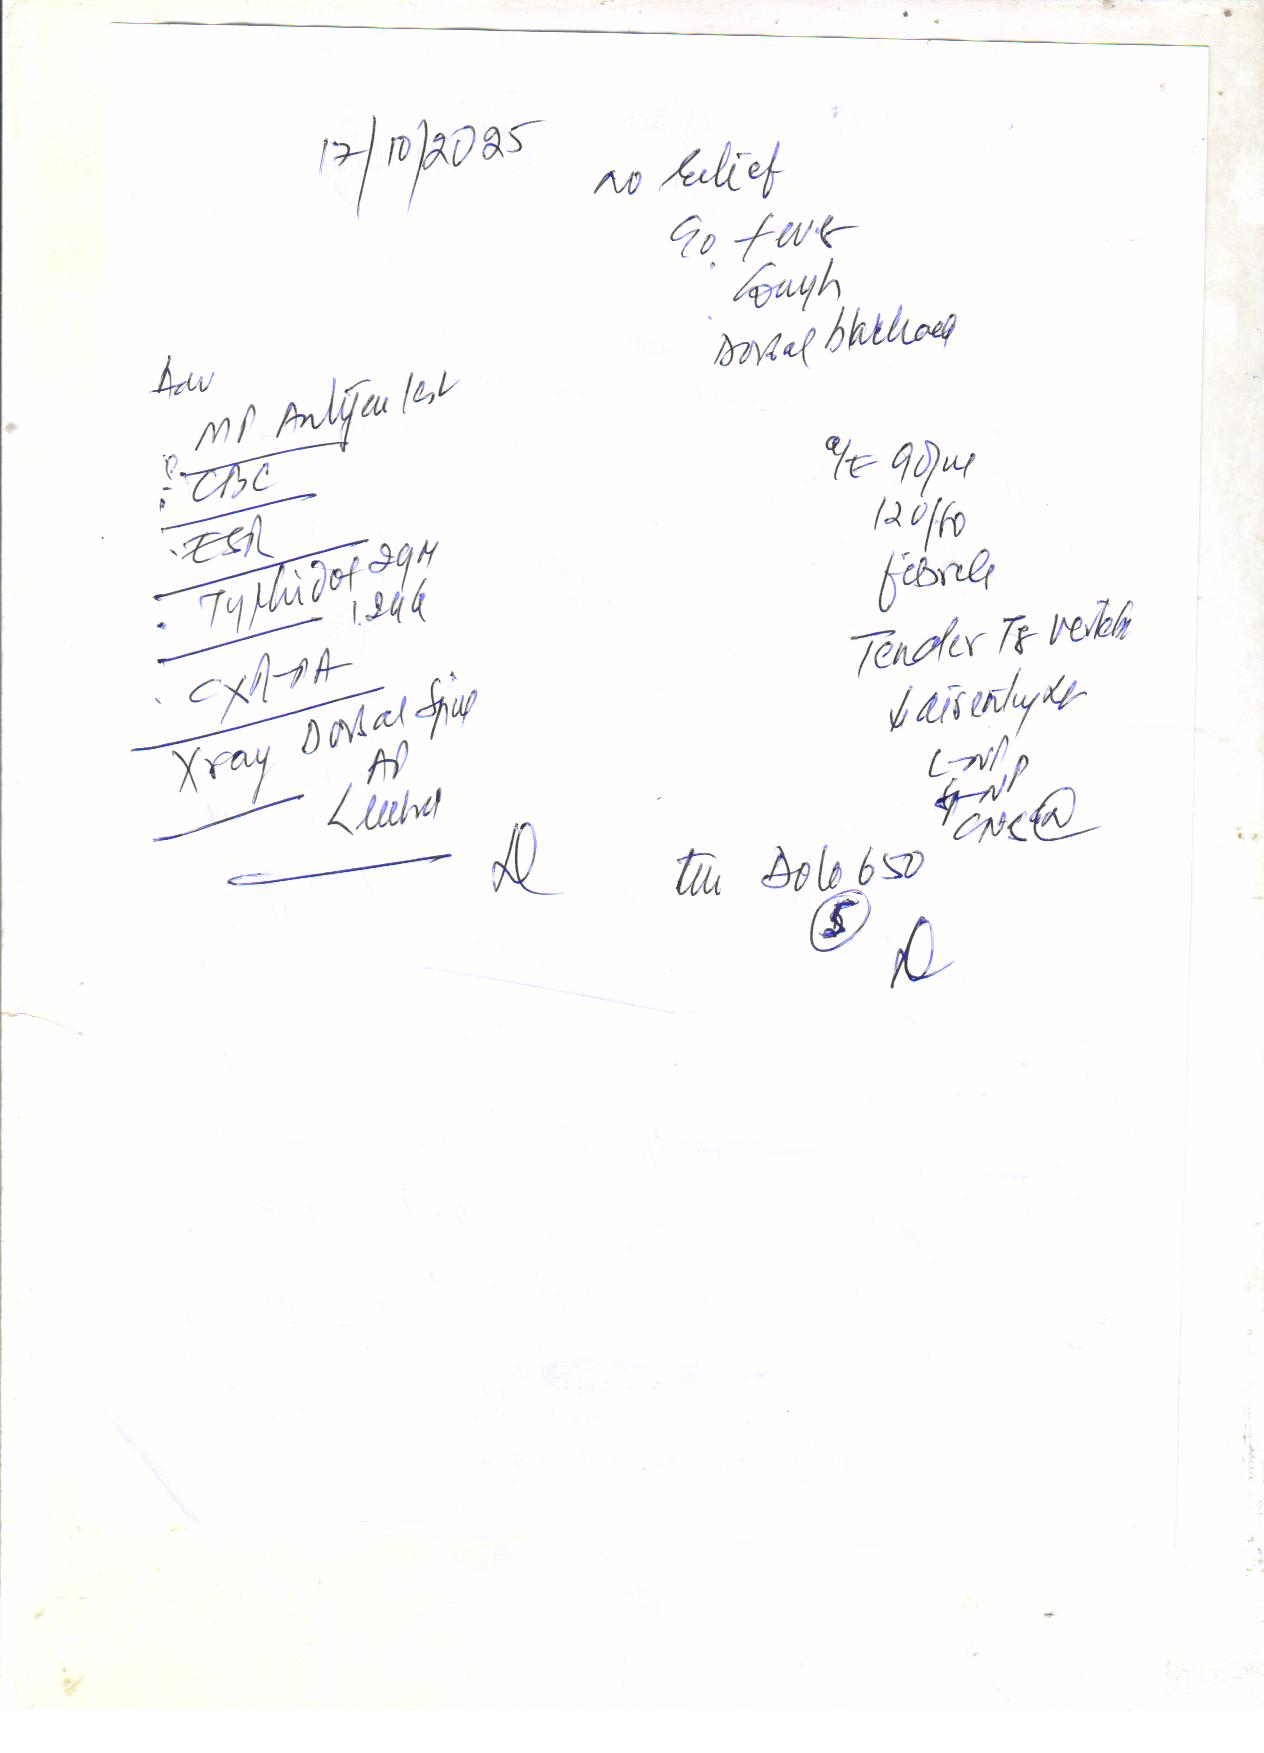 17/10/2025
no relief
c/o. fever
Cough
Dorsal backache
Adv
MP Antigen test
CBC
ESR
Typhidot IgM
IgG
CXR-PA
Xray Dorsal Spine
AP
Lateral
o/E 90/m
120/60
febrile
Tender T8 verteb
L-NP
NP
CNS (N)
Dolo 650
5